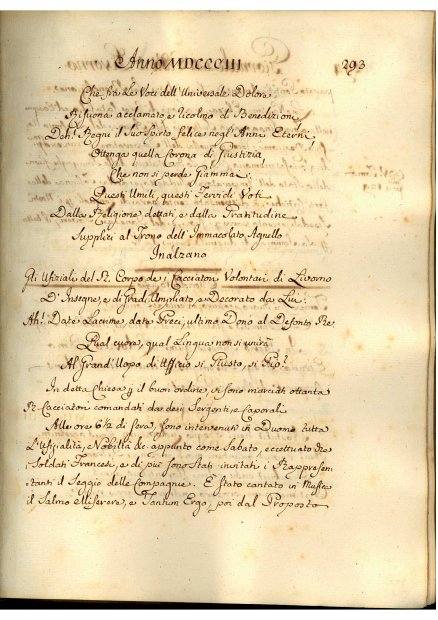 Anno MDCCCIII 293
Che frà le Voci dell'Universale Dolore
Risuona acclamato, e Ricolmo di Benedizioni
Deh! Regni il Suo Spirto felice negl'Anni Eterni
Ottenga quella Corona di Giustizia
Che non si perde giammai:
Questi Umili, questi Fervidi Voti
Dalla Religione dettati, e dalla Gratitudine
Supplici al Trono dell'Immacolato Agnello
Inalzano
Gli Ufiziali del R. Corpo de i Cacciatori Volontari di Livorno
D'Insegne, e di Gradi, Ampliato, e Decorato da Lui:
Ah! Date Lacrime, date Preci, ultimo Dono al Defonto Re,
Qual cuore, qual Lingua non si unirà
Al Grand'Uopo, di Ufficio si Giusto, si Pio?
In detta Chiesa p il buon ordine, si sono marciati ottanta
R. Cacciatori comandati da Sergenti, e Caporali
Alle ore 6½ di Sera, sono intervenuti in Duomo tutta
L'Uffizialità, e Nobiltà de appunto come Sabato, eccettuato che
i Soldati Francesi, e di più sono stati invitati i Rappresen
tanti il Seggio delle Compagnie. È stato cantato in Musica
il Salmo Miserere, e Tantum Ergo, poi dal Proposto